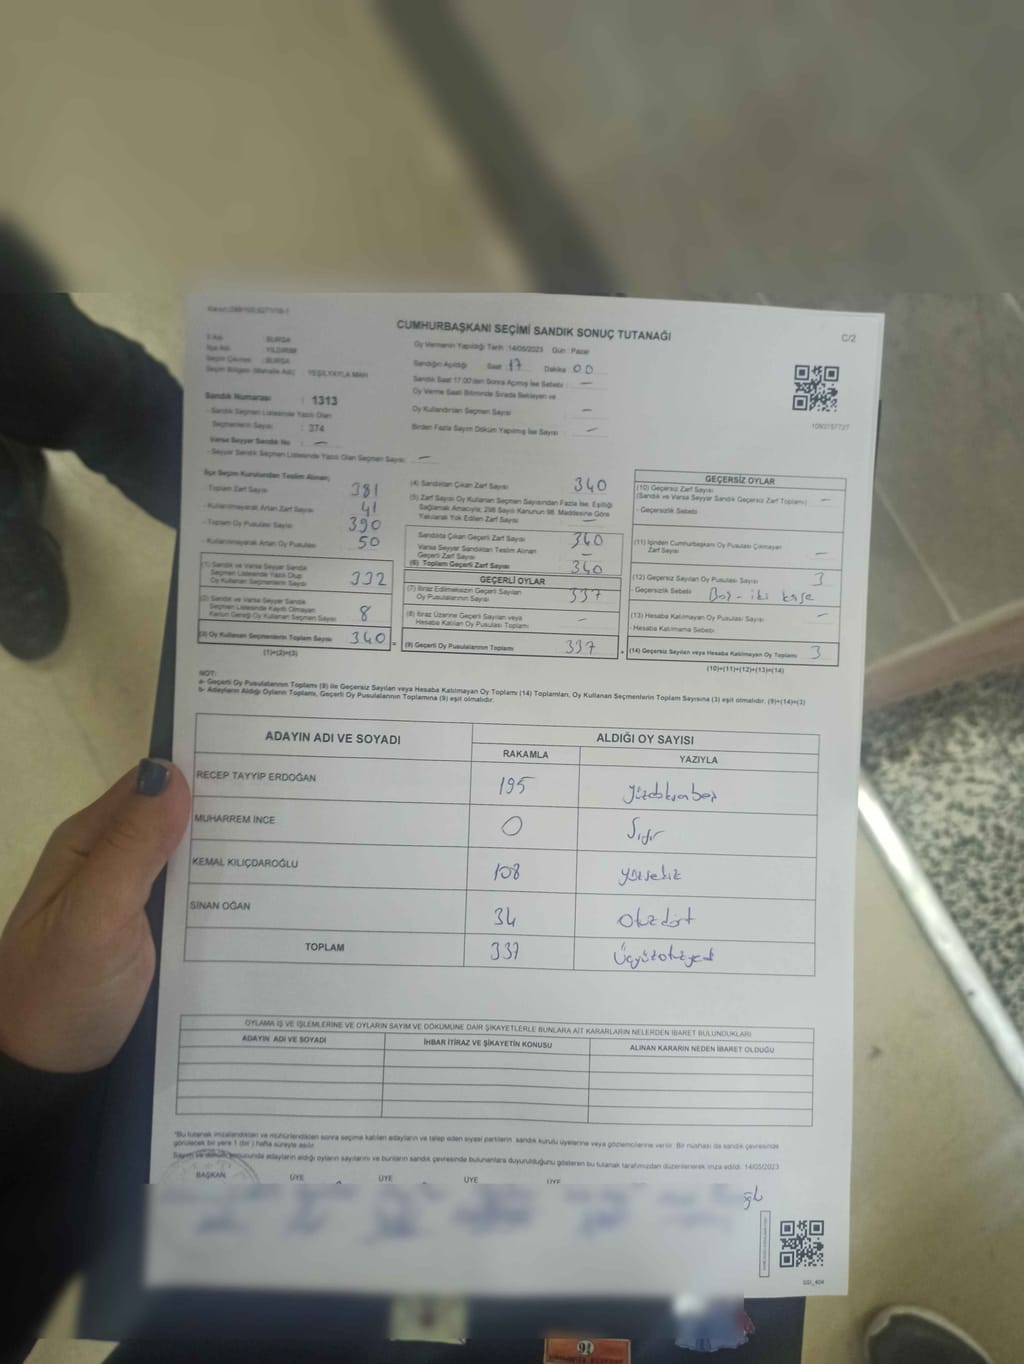 CUMHURBAŞKANI SEÇİMİ SANDIK SONUÇ TUTANAĞI
C/2
BURSA
YILDIRIM
BURSA
YEŞİLYAYLA MAH
Oy Vermenin Yapıldığı Tarih : 14/05/2023 Gün : Pazar
Sandığın Açıldığı Saat : 17 Dakika : 00
Sandık Saat 17.00'den Sonra Açılmış İse Sebebi : —
Oy Verme Saati Bitiminde Sırada Bekleyen ve
Oy Kullandırılan Seçmen Sayısı —
Birden Fazla Sayım Döküm Yapılmış İse Sayısı : —
1093157727
Sandık Numarası : 1313
- Sandık Seçmen Listesinde Yazılı Olan
Seçmenlerin Sayısı : 374
Varsa Seyyar Sandık No : —
- Seyyar Sandık Seçmen Listesinde Yazılı Olan Seçmen Sayısı : —
İlçe Seçim Kurulundan Teslim Alınan;
- Toplam Zarf Sayısı 381
- Kullanılmayarak Artan Zarf Sayısı 41
- Toplam Oy Pusulası Sayısı 390
- Kullanılmayarak Artan Oy Pusulası 50
(1) Sandık ve Varsa Seyyar Sandık
Seçmen Listesinde Yazılı Olup
Oy Kullanan Seçmenlerin Sayısı 332
(2) Sandık ve Varsa Seyyar Sandık
Seçmen Listesinde Kaydı Olmayan
Kanun Gereği Oy Kullanan Seçmen Sayısı 8
(3) Oy Kullanan Seçmenlerin Toplam Sayısı 340 =
(1)+(2)=(3)
(4) Sandıktan Çıkan Zarf Sayısı 340
(5) Zarf Sayısı Oy Kullanan Seçmen Sayısından Fazla İse, Eşitliği
Sağlamak Amacıyla; 298 Sayılı Kanunun 98. Maddesine Göre
Yakılarak Yok Edilen Zarf Sayısı —
Sandıkta Çıkan Geçerli Zarf Sayısı 340
Varsa Seyyar Sandıktan Teslim Alınan
Geçerli Zarf Sayısı —
(6) Toplam Geçerli Zarf Sayısı 340
GEÇERLİ OYLAR
(7) İtiraz Edilmeksizin Geçerli Sayılan
Oy Pusulalarının Sayısı 337
(8) İtiraz Üzerine Geçerli Sayılan veya
Hesaba Katılan Oy Pusulası Toplamı —
(9) Geçerli Oy Pusulalarının Toplamı 337 +
GEÇERSİZ OYLAR
(10) Geçersiz Zarf Sayısı
(Sandık ve Varsa Seyyar Sandık Geçersiz Zarf Toplamı) —
- Geçersizlik Sebebi
(11) İçinden Cumhurbaşkanı Oy Pusulası Çıkmayan
Zarf Sayısı —
(12) Geçersiz Sayılan Oy Pusulası Sayısı 3
- Geçersizlik Sebebi Boş - iki kaşe
(13) Hesaba Katılmayan Oy Pusulası Sayısı —
- Hesaba Katılmama Sebebi
(14) Geçersiz Sayılan veya Hesaba Katılmayan Oy Toplamı 3
(10)+(11)+(12)+(13)=(14)
NOT:
a- Geçerli Oy Pusulalarının Toplamı (9) ile Geçersiz Sayılan veya Hesaba Katılmayan Oy Toplamı (14) Toplamları, Oy Kullanan Seçmenlerin Toplam Sayısına (3) eşit olmalıdır. (9)+(14)=(3)
b- Adayların Aldığı Oyların Toplamı, Geçerli Oy Pusulalarının Toplamına (9) eşit olmalıdır.
ADAYIN ADI VE SOYADI ALDIĞI OY SAYISI
RAKAMLA YAZIYLA
RECEP TAYYİP ERDOĞAN 195 yüzdoksanbeş
MUHARREM İNCE 0 Sıfır
KEMAL KILIÇDAROĞLU 108 yüzsekiz
SİNAN OĞAN 34 Otuzdört
TOPLAM 337 Üçyüzotuzyedi
OYLAMA İŞ VE İŞLEMLERİNE VE OYLARIN SAYIM VE DÖKÜMÜNE DAİR ŞİKAYETLERLE BUNLARA AİT KARARLARIN NELERDEN İBARET BULUNDUKLARI
ADAYIN ADI VE SOYADI İHBAR İTİRAZ VE ŞİKAYETİN KONUSU ALINAN KARARIN NEDEN İBARET OLDUĞU
*Bu tutanak imzalandıktan ve mühürlendikten sonra seçime katılan adayların ve talep eden siyasi partilerin sandık kurulu üyelerine veya gözlemcilerine verilir. Bir nüshası da sandık çevresinde
görülecek bir yere 1 (bir) hafta süreyle asılır.
Sayım ve döküm sonucunda adayların aldığı oyların sayılarını ve bunların sandık çevresinde bulunanlara duyurulduğunu gösteren bu tutanak tarafımızdan düzenlenerek imza edildi. 14/05/2023
BAŞKAN ÜYE ÜYE ÜYE ÜYE